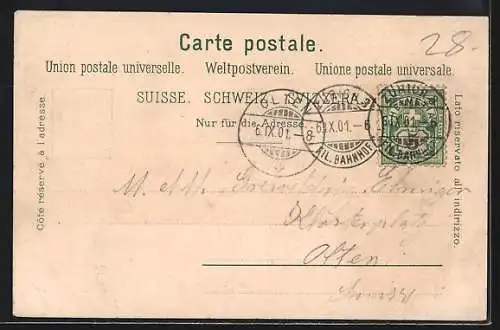 28.
Carte postale.
Union postale universelle. Weltpostverein. Unione postale universale.
SUISSE. SCHWEIZ. SVIZZERA.
Nur für die Adresse
Côté réservé à l'adresse
Lato riservato all'indirizzo.
OLTEN
6.IX.01.-8
ZÜRICH
6.IX.01.-6
FIL. BAHNHOF
ZÜRICH
6.IX.01.-6
FIL. BAHNHOF
Klosterplatz
Olten
Suisse